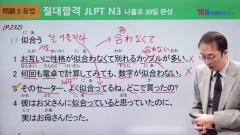 問題5 용법
절대합격 JLPT N3 나홀로 30일 완성
(P.232)
17 似合う
合わなくて
1 お互いに性格が似合わなくて別れるカップルが多い。
2 何回も電卓で計算してみても、数字が似合わない。
3 そのセーター、よく似合ってるね。どこで買ったの?
4 彼はお父さんに似合っていると思っていたのに、
実はお母さんだった。